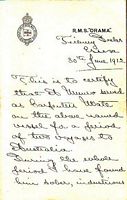 R.M.S. "ORAMA."
Tilbury Docks
30th June 1912
This is to certify
that Munro served
as Carpenters Mate
on the above named
vessel for a period
of two voyages to
Australia.
During the whole
period I have found
him sober, industrious